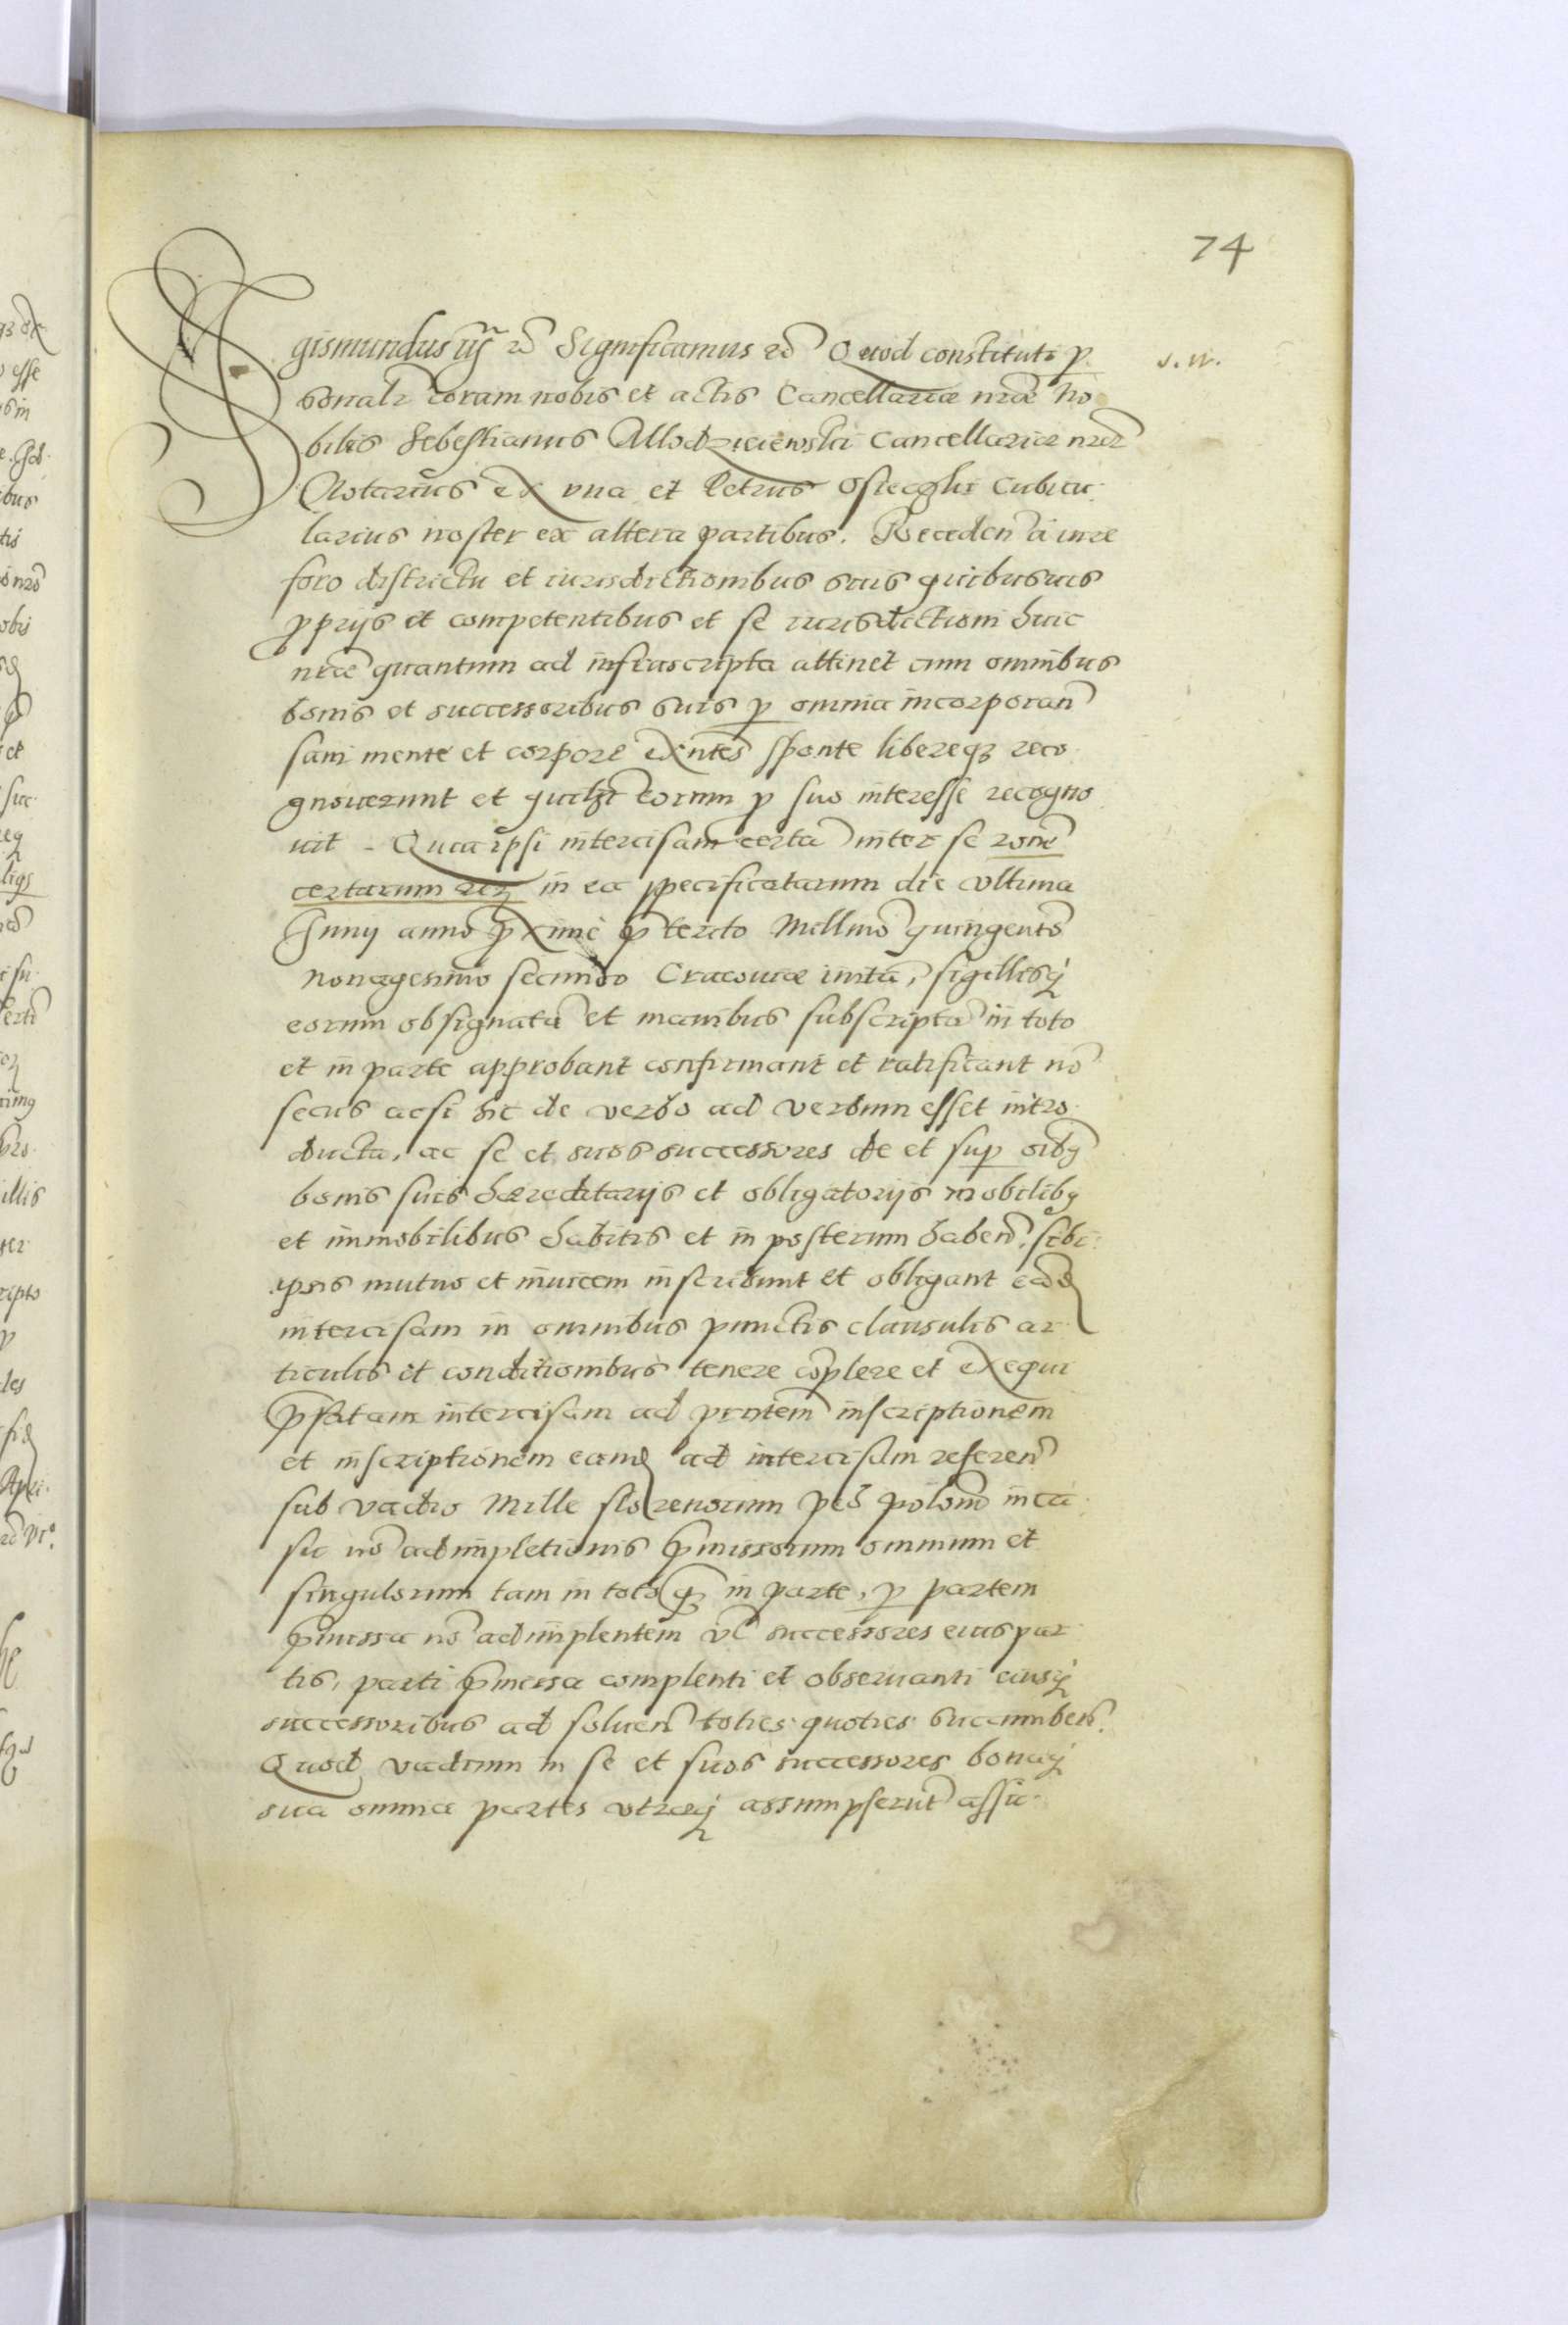 74
Sigismundus iij rc̃ Significamus rc̃ Quod constituti p̱
sonalr̃ coram nobis et actis Cancellariæ nr̃æ No
bilis Sebestianus Mlodzieiewski Cancellariæ nr̃æ
Notarius ex vna et Petrus Osieczki Cubicu
larius noster ex altera partibus. Receden̄ à iure
foro districtu et iurisdictionibus suis quibusuis
ꝓprijs et competentibus et se iurisdictioni huic
nr̃æ quantum ad infrascripta attinet cum omnibus
bonis et successoribus suis p̱ omnia incorporan̄
sani mente et corpore exn̄tes sponte libereqꝫ reco
gnouerunt et quilibet eorum ꝓ suo interesse recogno
uit – Quia ipsi intercisam certā inter se rōne
certarum rerꝫ in ea specificatarum die vltima
Junij anno ꝓxime p̄terito Millm̄o quingentō
nonagesimo secundo Cracouiæ initā, sigillisqꝫ
eorum obsignatā et manibus subscriptā in toto
et in parte approbant confirmant et ratificant nō
secus acsi hic de verbo ad verbum esset intro
ducta, ac se et suos successores de et sup̱ oībꝫ
bonis suis hæreditarijs et obligatorijs mobilibꝫ
et immobilibus habitis et in posterum haben̄. sibi
ipsis mutuo et inuicem inscribunt et obligant eād
intercisam in omnibus punctis clausulis ar
ticulis et conditionibus tenere cōplere et exequi
p̄fatam intercisam ad pn̄tem inscriptionem
et inscriptionem eamd ad intercisam referen̄
sub vadio Mille florenorum pec̄ polon̄ in ca
su nō adimpletionis p̄missorum omnium et
singulorum tam in toto qꝫ in parte, p̱ partem
p̄missa nō adimplentem vl̄ successores eius par
tis, parti p̄missa complenti et obseruanti eiusqꝫ
successoribus ad soluen̄ toties quoties succumben̄.
Quod vadium in se et suos successores bonaqꝫ
sua omnia partes vtræqꝫ assumpserūt assu